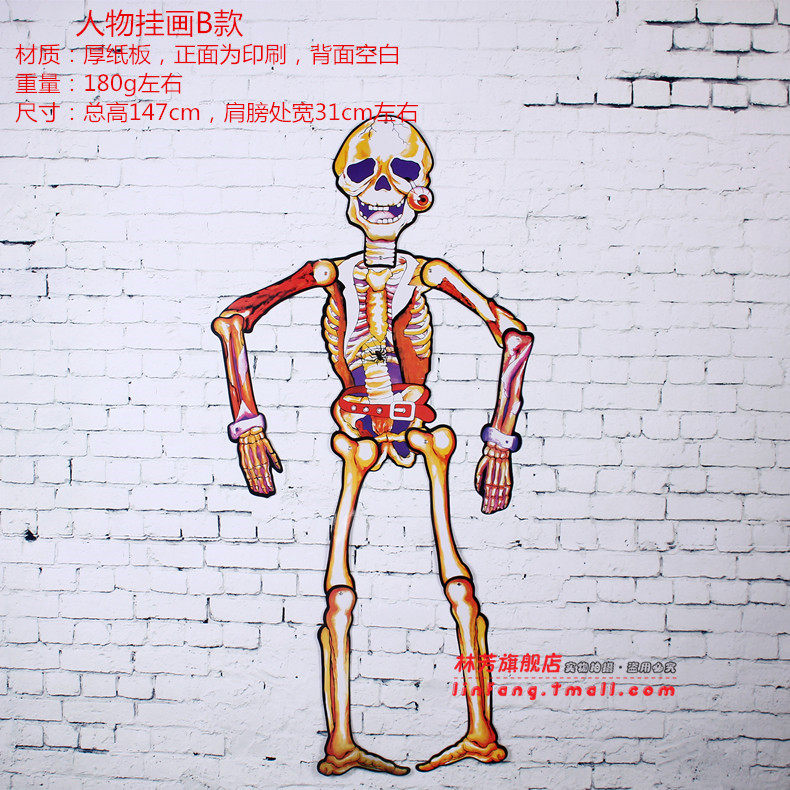 人物挂画B款
材质：厚纸板，正面为印刷，背面空白
重量：180g左右
尺寸：总高147cm，肩膀处宽31cm左右
林芳旗舰店 实物拍摄·盗用必究
linfang.tmall.com